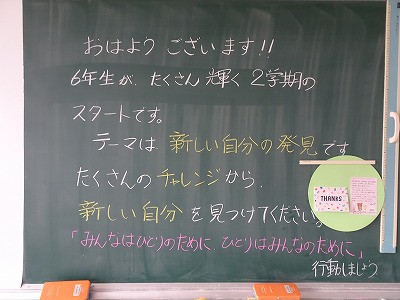 おはようございます!!
6年生が、たくさん輝く2学期の
スタートです。
テーマは、新しい自分の発見です
たくさんのチャレンジから、
新しい自分を見つけてください。
「みんなはひとりのために、ひとりはみんなのために」
行動しましょう
THANKS